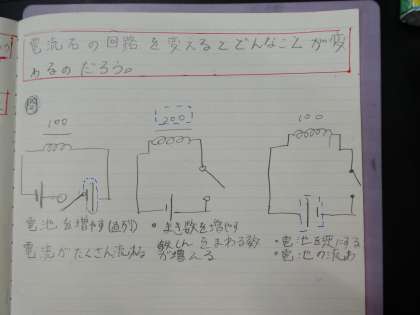 電流石の回路を変えるとどんなことが変
わるのだろう。
図
100
200
100
電池を増やす(直列)
電流がたくさん流れる
・まき数を増やす
鉄しんをまわる数
が増える
・電池を逆にする
・電池の流れ